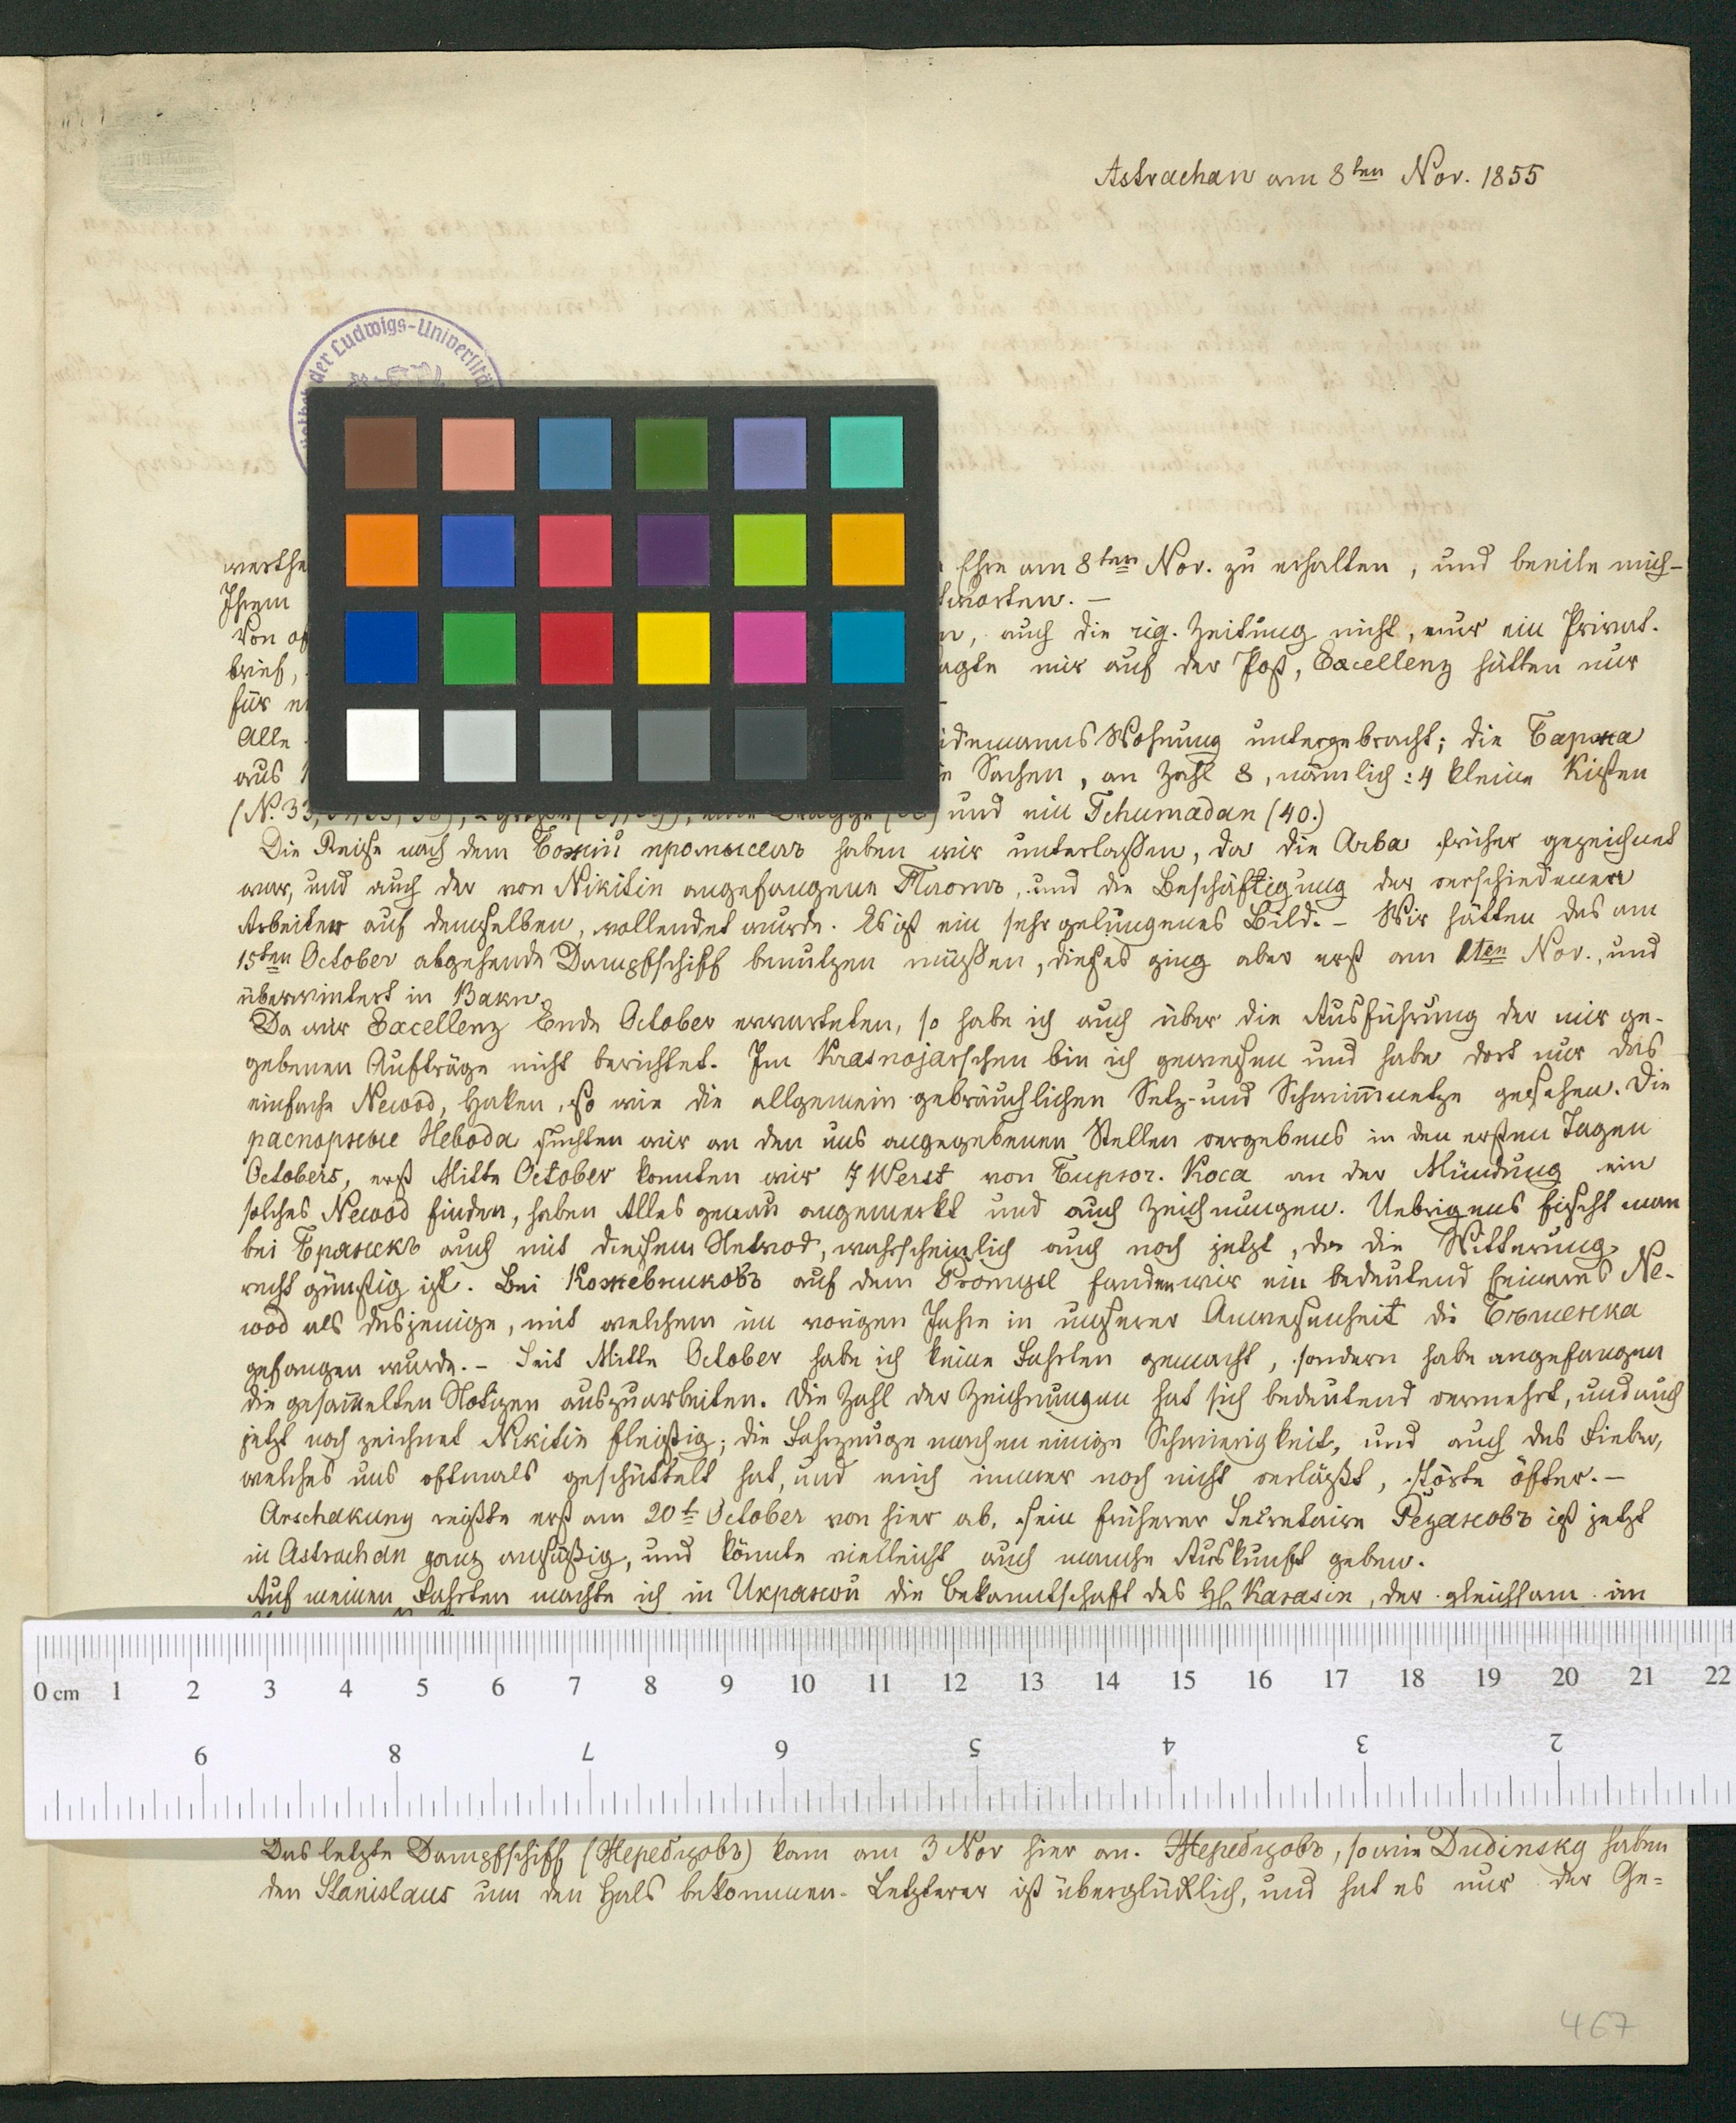 Astrachan am 8ten Nov. 1855
der Ludwigs-Universität
werthe Ehre am 8ten Nov. zu erhalten, und beeile mich
Ihrem
Von auch die rig. Zeitung nicht, nur ein Privat-
brief, mir auf der Post, Excellenz hätten nur
für
Alle Wohnung untergebracht; die Барка
aus Sachen, an Zahl 8, nämlich: 4 kleine Kisten
und ein Tchumadan (40.)
Die Reise nach dem Божій промыселъ haben wir unterlaßen, da die Arba früher gezeichnet
war, und auch der von Nikitin angefangene Плотъ, und die Beschäftigung der verschiedenen
Arbeiter auf demselben, vollendet wurde. Es ist ein sehr gelungenes Bild. – Wir hätten das am
15ten October abgehende Dampfschiff benutzen müßen, dieses ging aber erst am 1ten Nov., und
überwintert in Baku.
Da wir Excellenz Ende October erwarteten, so habe ich auch über die Ausführung der mir ge-
gebenen Aufträge nicht berichtet. Im Krasnojarschen bin ich gewesen und habe dort nur das
einfache Newod, Haken, so wie die allgemein gebräuchlichen Setz- und Schwimmnetze gesehen. Die
распорные Невода suchten wir an den uns angegebenen Stellen vergebens in den ersten Tagen
Octobers, erst Mitte October konnten wir 7 Werst von Бирюч. Коса an der Mündung ein
solches Newod finden, haben Alles genau angemerkt und auch Zeichnungen. Uebrigens fischt man
bei Брянскъ auch mit diesem Netwod, wahrscheinlich auch noch jetzt, da die Witterung
recht günstig ist. Bei Кожевниковъ auf dem Promysl fanden wir ein bedeutend feineres Ne-
wod als dasjenige, mit welchem im vorigen Jahre in unserer Anwesenheit die Бѣшенка
gefangen wurde. – Seit Mitte October habe ich keine Fahrten gemacht, sondern habe angefangen
die gesammelten Notizen auszuarbeiten. Die Zahl der Zeichnungen hat sich bedeutend vermehrt, und auch
jetzt noch zeichnet Nikitin fleißig; die Fahrzeuge machen einige Schwierigkeit, und auch das Fieber,
welches uns oftmals geschüttelt hat, und mich immer noch nicht verläßt, störte öfter. –
Arschakuny reißte erst am 20t October von hier ab. sein früherer Secretaire Резановъ ist jetzt
in Astrachan ganz ansäßig, und könnte vielleicht auch manche Auskunft geben.
Auf meinen Fahrten machte ich in Икряной die Bekanntschaft des H Karasin, der gleichsam im
Das letzte Dampfschiff (Жеребцовъ) kam am 3 Nov hier an. Жеребцовъ, so wie Dudinsky haben
den Stanislaus um den Hals bekommen. Letzterer ist überglücklich, und hat es nur der Ge=
467
0 cm 1 2 3 4 5 6 7 8 9 10 11 12 13 14 15 16 17 18 19 20 21 22
9 8 7 6 5 4 3 2